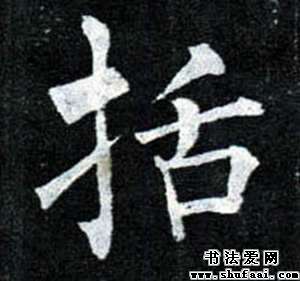 括
书法爱网
www.shufaai.com